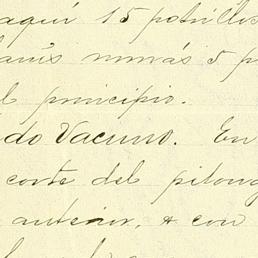 aquí 15 potrillos
más 5 p
el principio.
do Vacuno. En
corte del pilong
anterior, & con